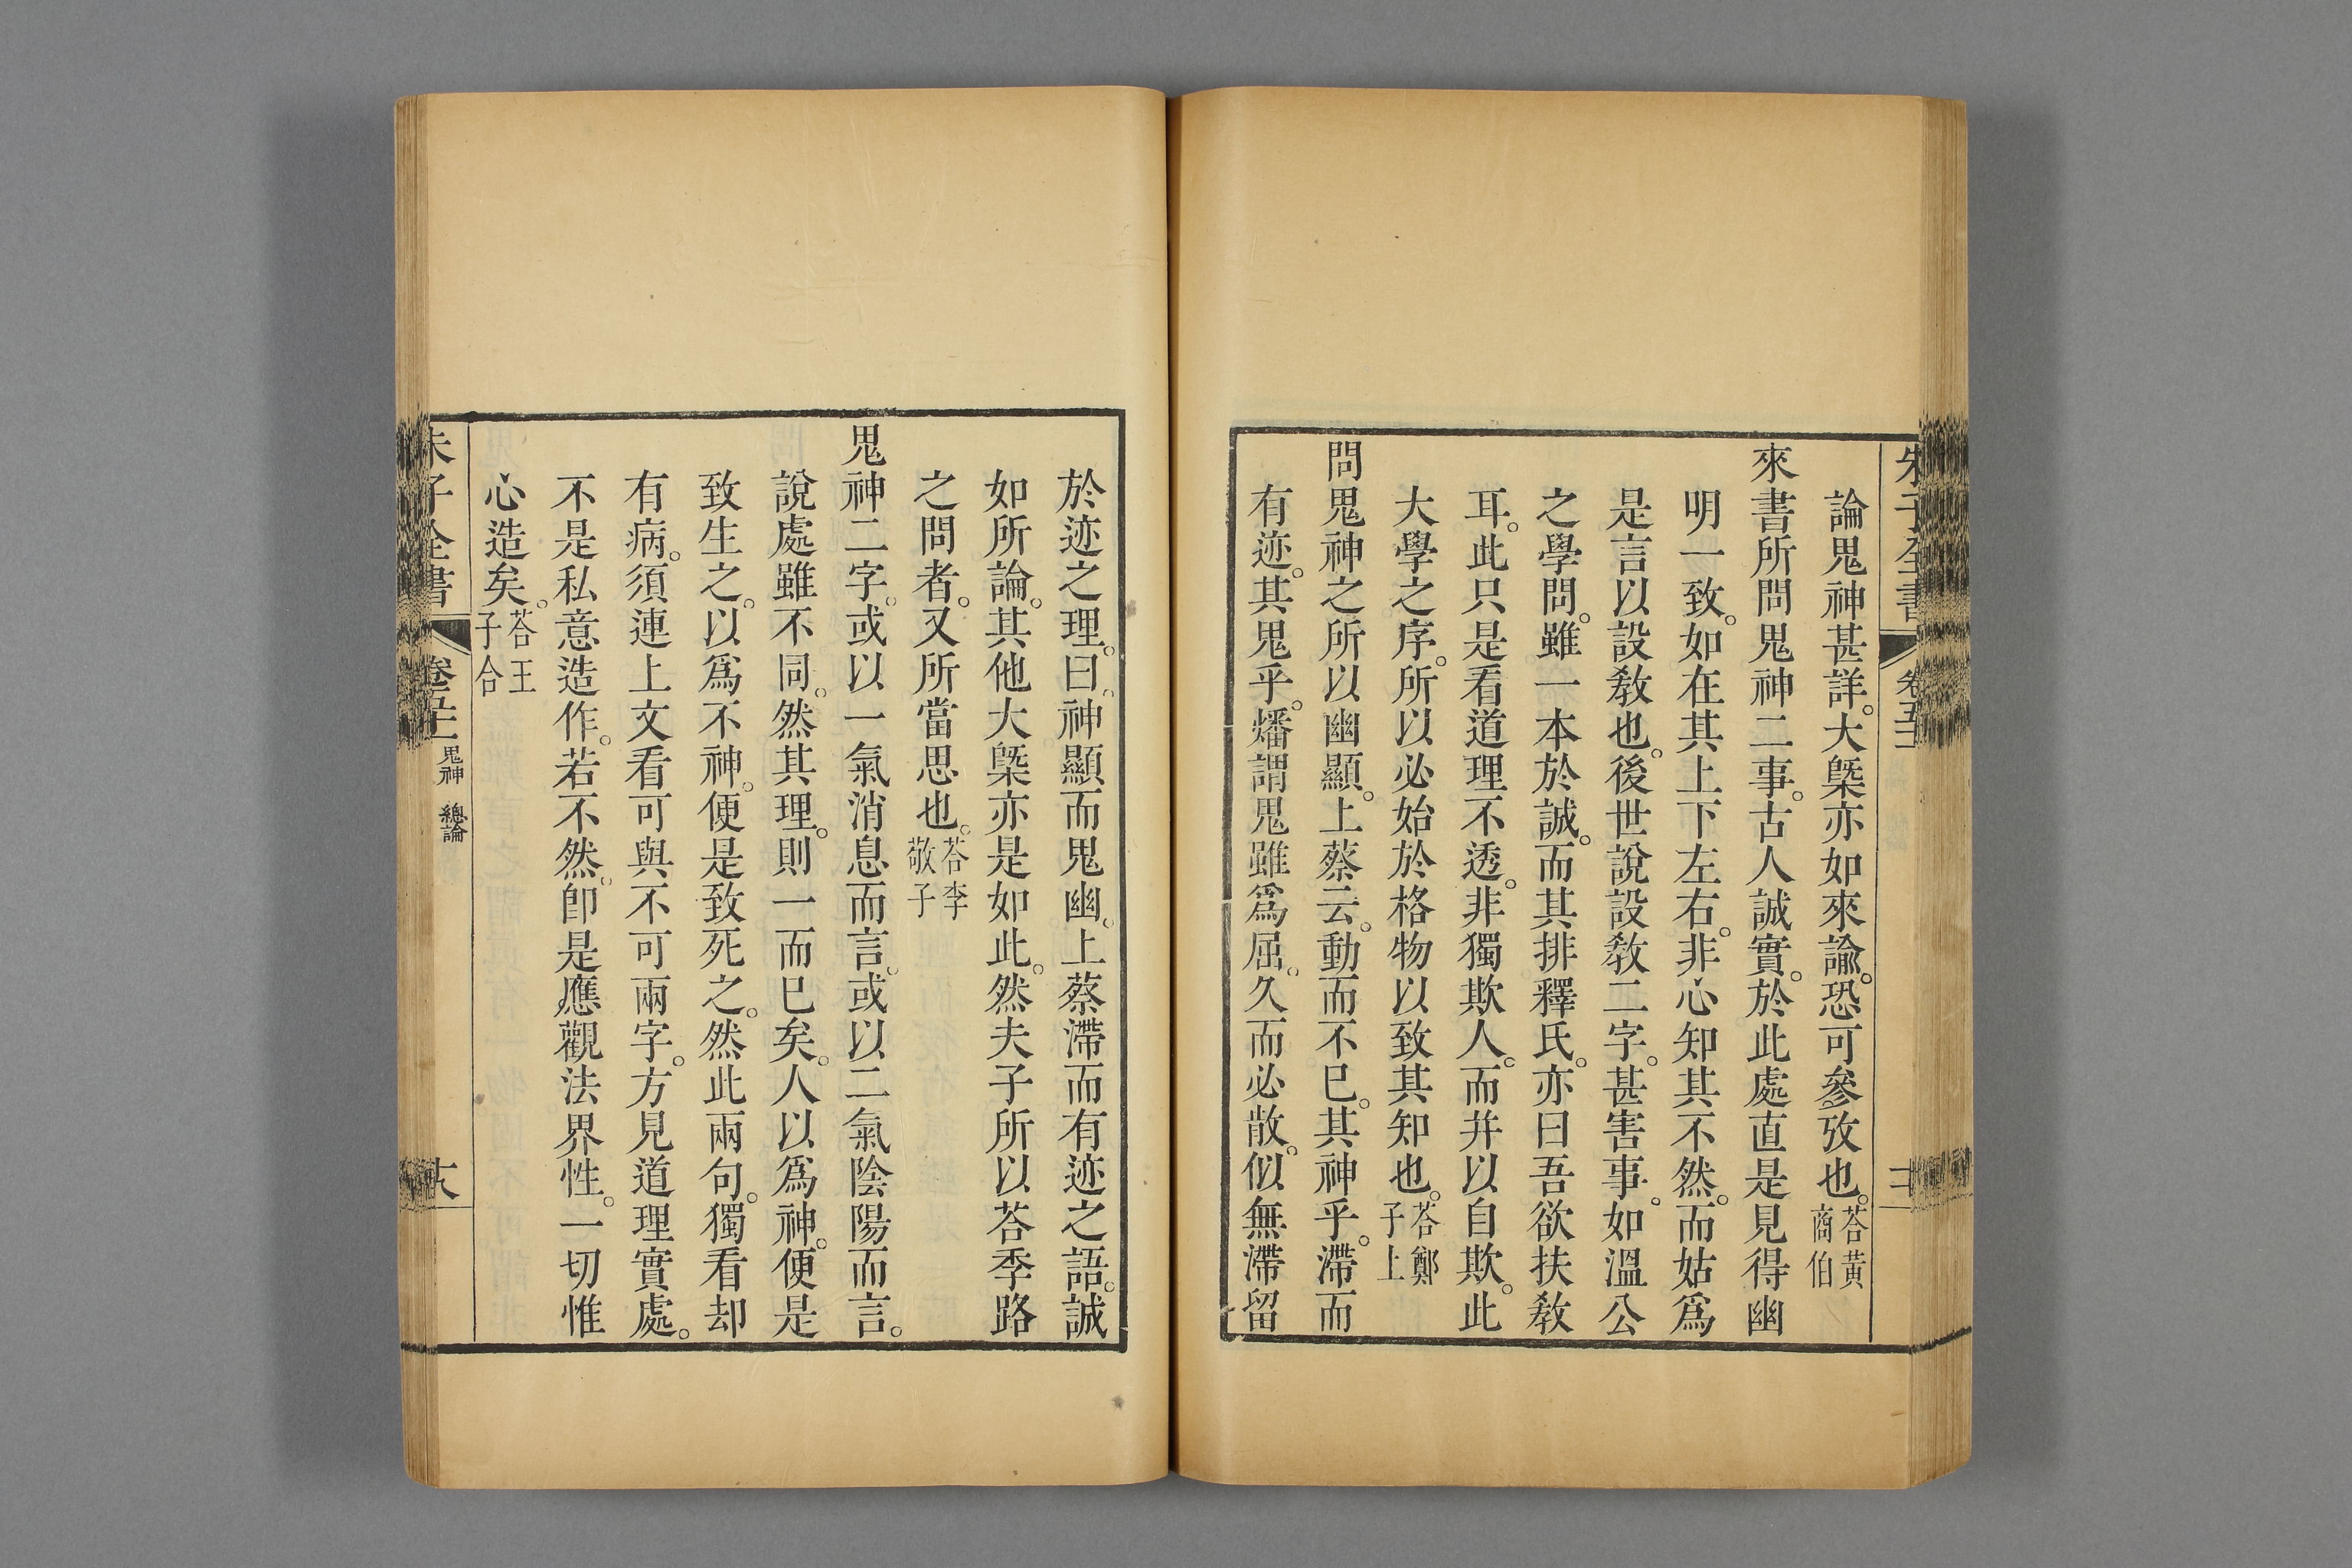 論鬼神甚詳。大槩亦如來諭。恐可參攷也。荅黃商伯
來書所問鬼神二事。古人誠實。於此處直是見得幽
明一致。如在其上下左右。非心知其不然。而姑爲
是言以設敎也。後世說設敎二字。甚害事。如溫公
之學問。雖一本於誠。而其排釋氏。亦曰吾欲扶敎
耳。此只是看道理不透。非獨欺人。而并以自欺。此
大學之序。所以必始於格物以致其知也。荅鄭子上
問鬼神之所以幽顯。上蔡云。動而不已。其神乎。滯而
有迹。其鬼乎。燔謂鬼雖爲屈。久而必散。似無滯留
於迹之理。曰。神顯而鬼幽。上蔡滯而有迹之語。誠
如所論。其他大槩亦是如此。然夫子所以荅季路
之問者。又所當思也。荅李敬子
鬼神二字。或以一氣消息而言。或以二氣陰陽而言。
說處雖不同。然其理。則一而已矣。人以爲神。便是
致生之。以爲不神。便是致死之。然此兩句。獨看却
有病。須連上文看可與不可兩字。方見道理實處。
不是私意造作。若不然。卽是應觀法界性。一切惟
心造矣。荅王子合
朱子全書
鬼神 總論